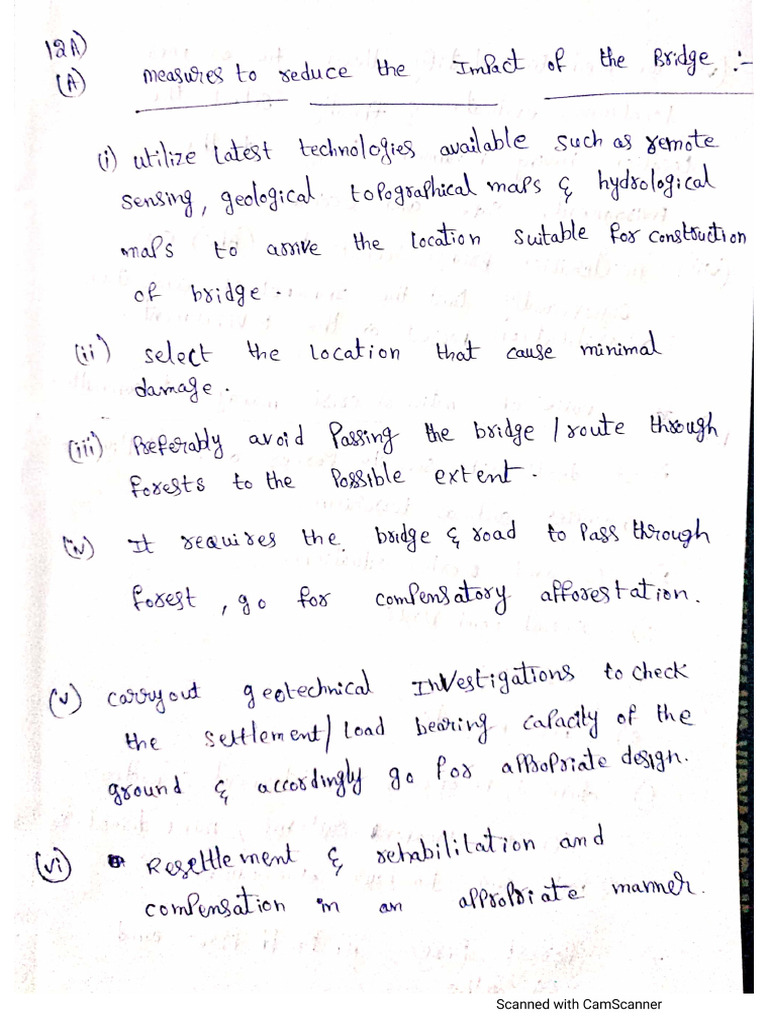 12A)
(A) measures to reduce the Impact of the Bridge :-
(i) utilize latest technologies available such as remote
sensing, geological topographical maps & hydrological
maps to arrive the location suitable for construction
of bridge.
(ii) select the location that cause minimal
damage.
(iii) Preferably avoid Passing the bridge / route through
forests to the Possible extent.
(iv) It requires the bridge & road to pass through
forest, go for compensatory afforestation.
(v) carryout geotechnical Investigations to check
the settlement/load bearing capacity of the
ground & accordingly go for appropriate design.
(vi) Resettlement & rehabilitation and
compensation in an appropriate manner.
Scanned with CamScanner